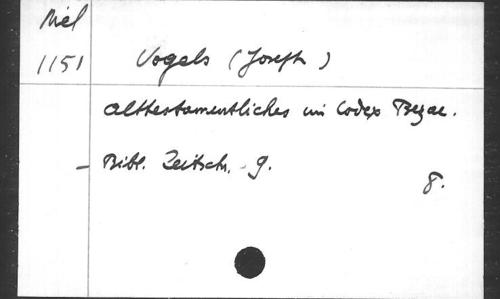 Mél
1151
Vogels (Joseph)
Alttestamentliches im Codex Bezae.
- Bibl. Zeitsch. 9.
8.